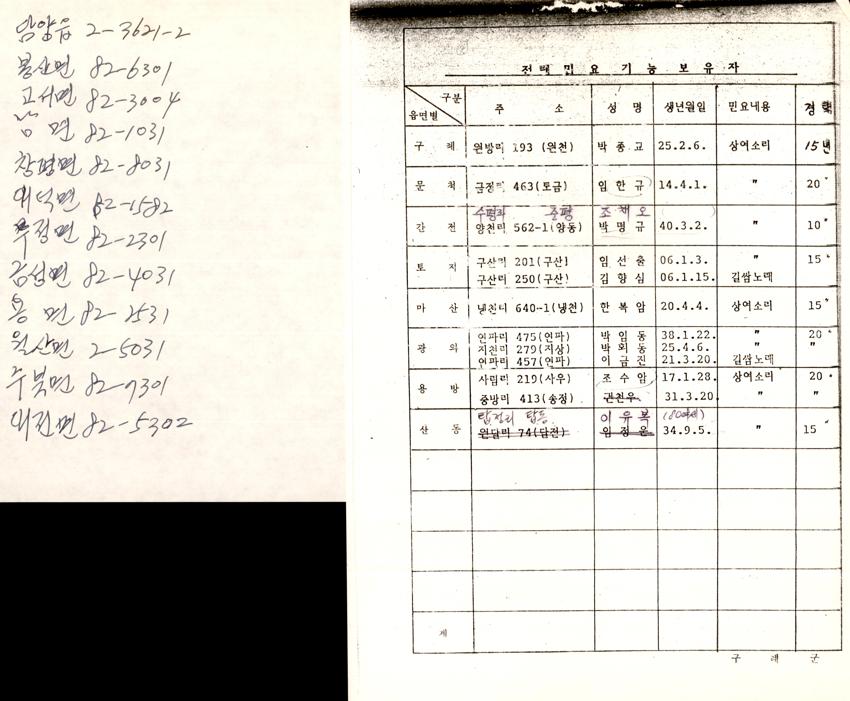 담양읍 2-3621-2
봉산면 82-6301
고서면 82-3004
남 면 82-1031
창평면 82-8031
대덕면 82-1582
무정면 82-2301
금성면 82-4031
용 면 82-2531
월산면 2-5031
수북면 82-7301
대전면 82-5302
전래민요기능보유자
구분 읍면별 주 소 성 명 생년월일 민요내용 경력
구 례 원방리 193 (원천) 박종교 25.2.6. 상여소리 15년
문 척 금정리 463(토금) 임한규 14.4.1. 〃 20〃
수평리 중평 조채오
간 전 양천리 562-1(양동) 박명규 40.3.2. 〃 10〃
토 지 구산리 201(구산) 임선출 06.1.3. 〃 15〃
구산리 250(구산) 김항심 06.1.15. 길쌈노래
마 산 냉천리 640-1(냉천) 한복암 20.4.4. 상여소리 15〃
광 의 연파리 475(연파) 박임동 38.1.22. 〃 20〃
지천리 279(지상) 박외동 25.4.6. 〃 〃
연파리 457(연파) 이금진 21.3.20. 길쌈노래
용 방 사림리 219(사우) 조수암 17.1.28. 상여소리 20〃
중방리 413(송정) 권천우 31.3.20 〃 〃
탑정리 탑동 이유복 (80여세)
산 동 원달리 74(달전) 임정은 34.9.5. 〃 15〃
계
구 례 군